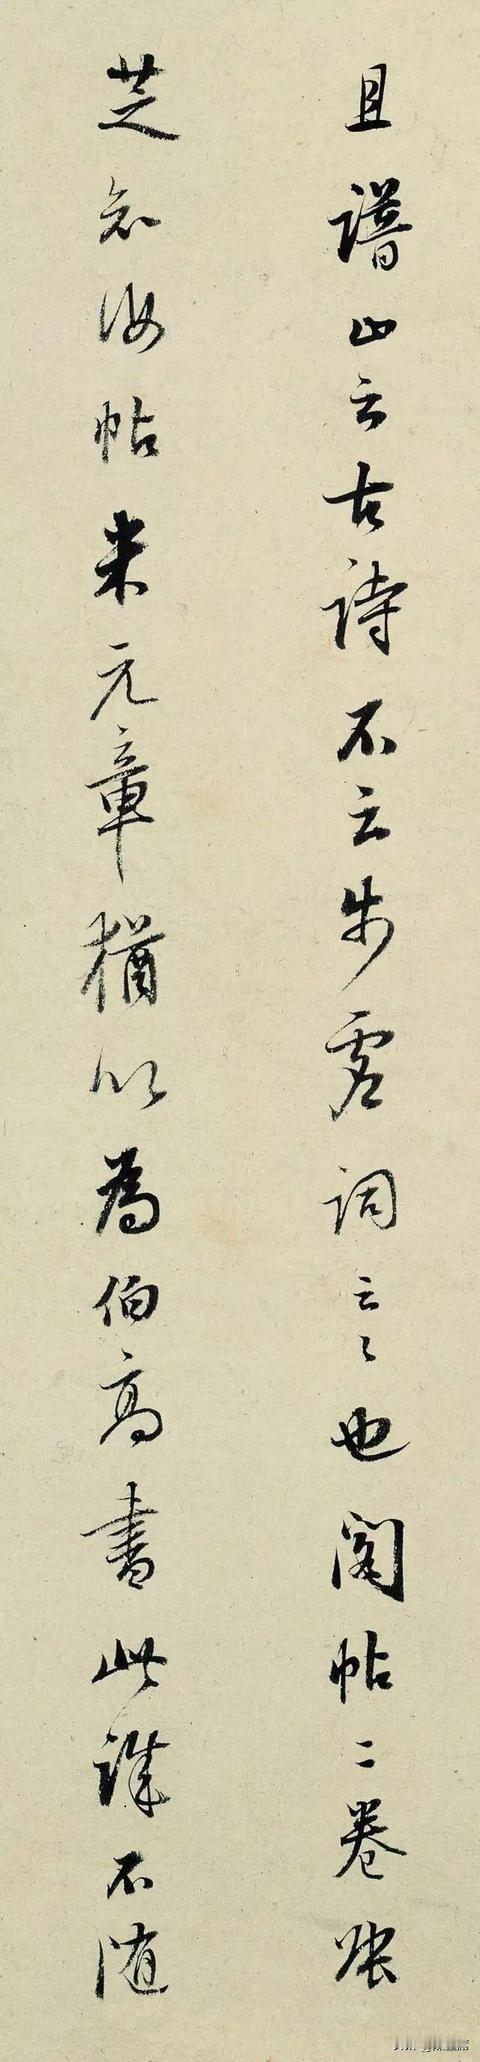 且譜止云古詩不云步虛詞云〻也閣帖二卷張
芝知汝帖米元章猶以為伯高書此誠不隨